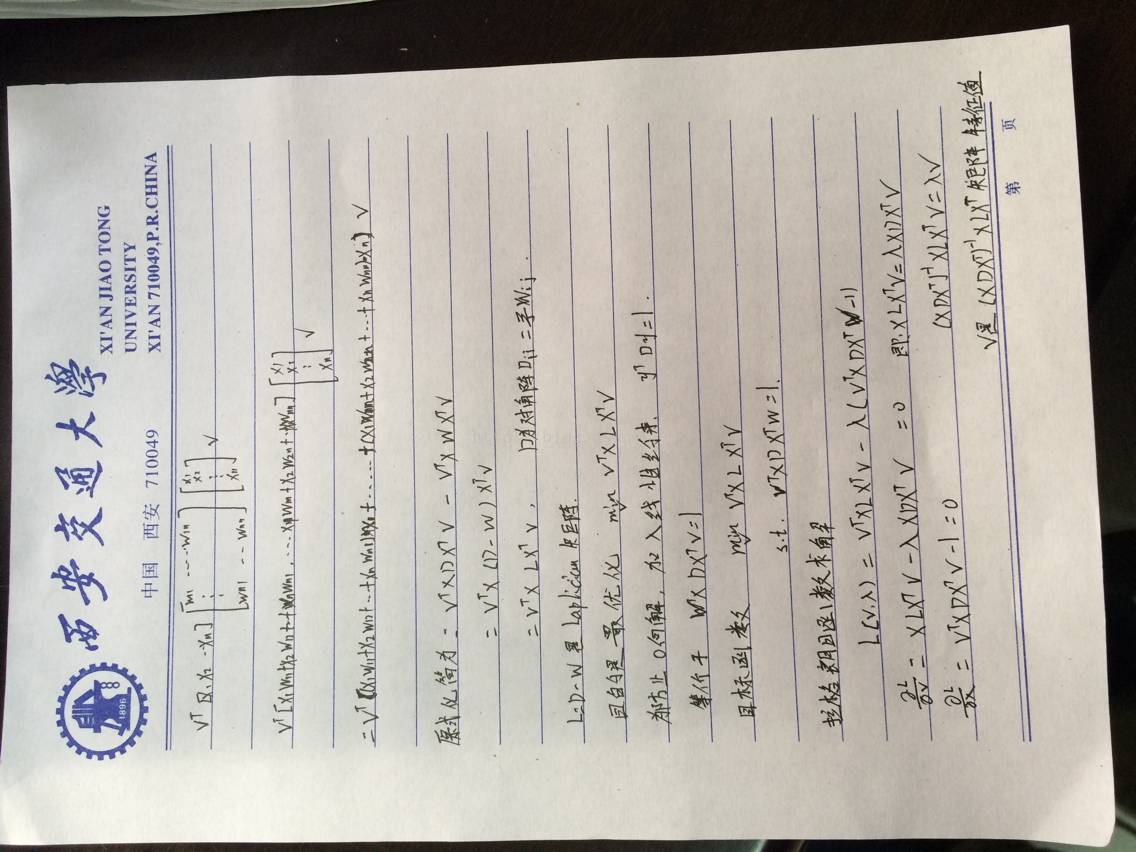 西安交通大學
1896
XI'AN JIAO TONG
UNIVERSITY
中国 西安 710049
XI'AN 710049,P.R.CHINA
V^T [X_1 X_2 ··· X_n] [w_11 ---- w_1n ⋮ w_n1 -- w_nn] [x_1 x_2 ⋮ x_n] V
V^T [x_1w_11+x_2w_12+···+x_nw_n1, ···· x_1w_1n+x_2w_2n+···x_nw_nn] [x_1 x_2 ⋮ x_n] V
= V^T ((x_1w_11+x_2w_12+···+x_nw_n1)x_1 + ······ +(x_1w_1n+x_2w_2n+···+x_nw_nn)x_n) V
原式化简为 = V^T X D X^T V - V^T X W X^T V
= V^T X (D-W) X^T V
= V^T X L X^T V , D为对角阵 D_ii = Σ_j W_ij .
L=D-W 是 Laplician 矩阵.
目的是 最优化 min V^T X L X^T V
为防止 0向解, 加入线性约束, y^T D y = 1 .
等价于 W^T X D X^T V = 1
目标函数 min V^T X L X^T V
s.t. V^T X D X^T W = 1.
拉格朗日函数求解
L(V,λ) = V^T X L X^T V - λ ( V^T X D X^T V -1)
∂L/∂V = X L X^T V - λ X D X^T V = 0 即: X L X^T V = λ X D X^T V
∂L/∂λ = V^T X D X^T V - 1 = 0 (X D X^T)^-1 X L X^T V = λ V
V是 (X D X^T)^-1 X L X^T 矩阵 特征值
第 页